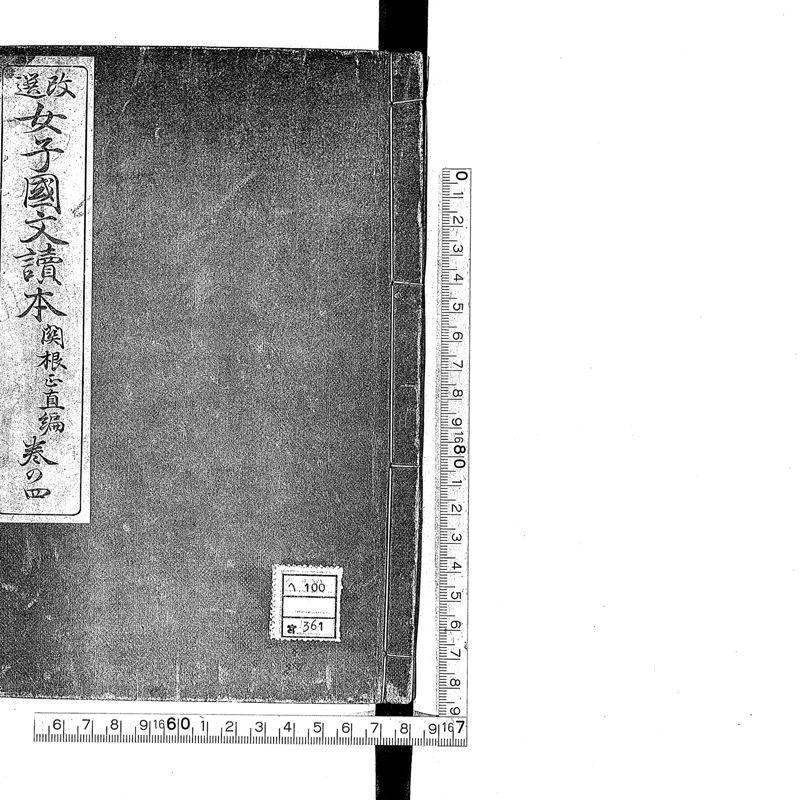 改選
女子國文讀本
関根正直編
巻の四
へ 100
361
0 1 2 3 4 5 6 7 8 9 16 80 1 2 3 4 5 6 7 8 9
6 7 8 9 16 60 1 2 3 4 5 6 7 8 9 16 7